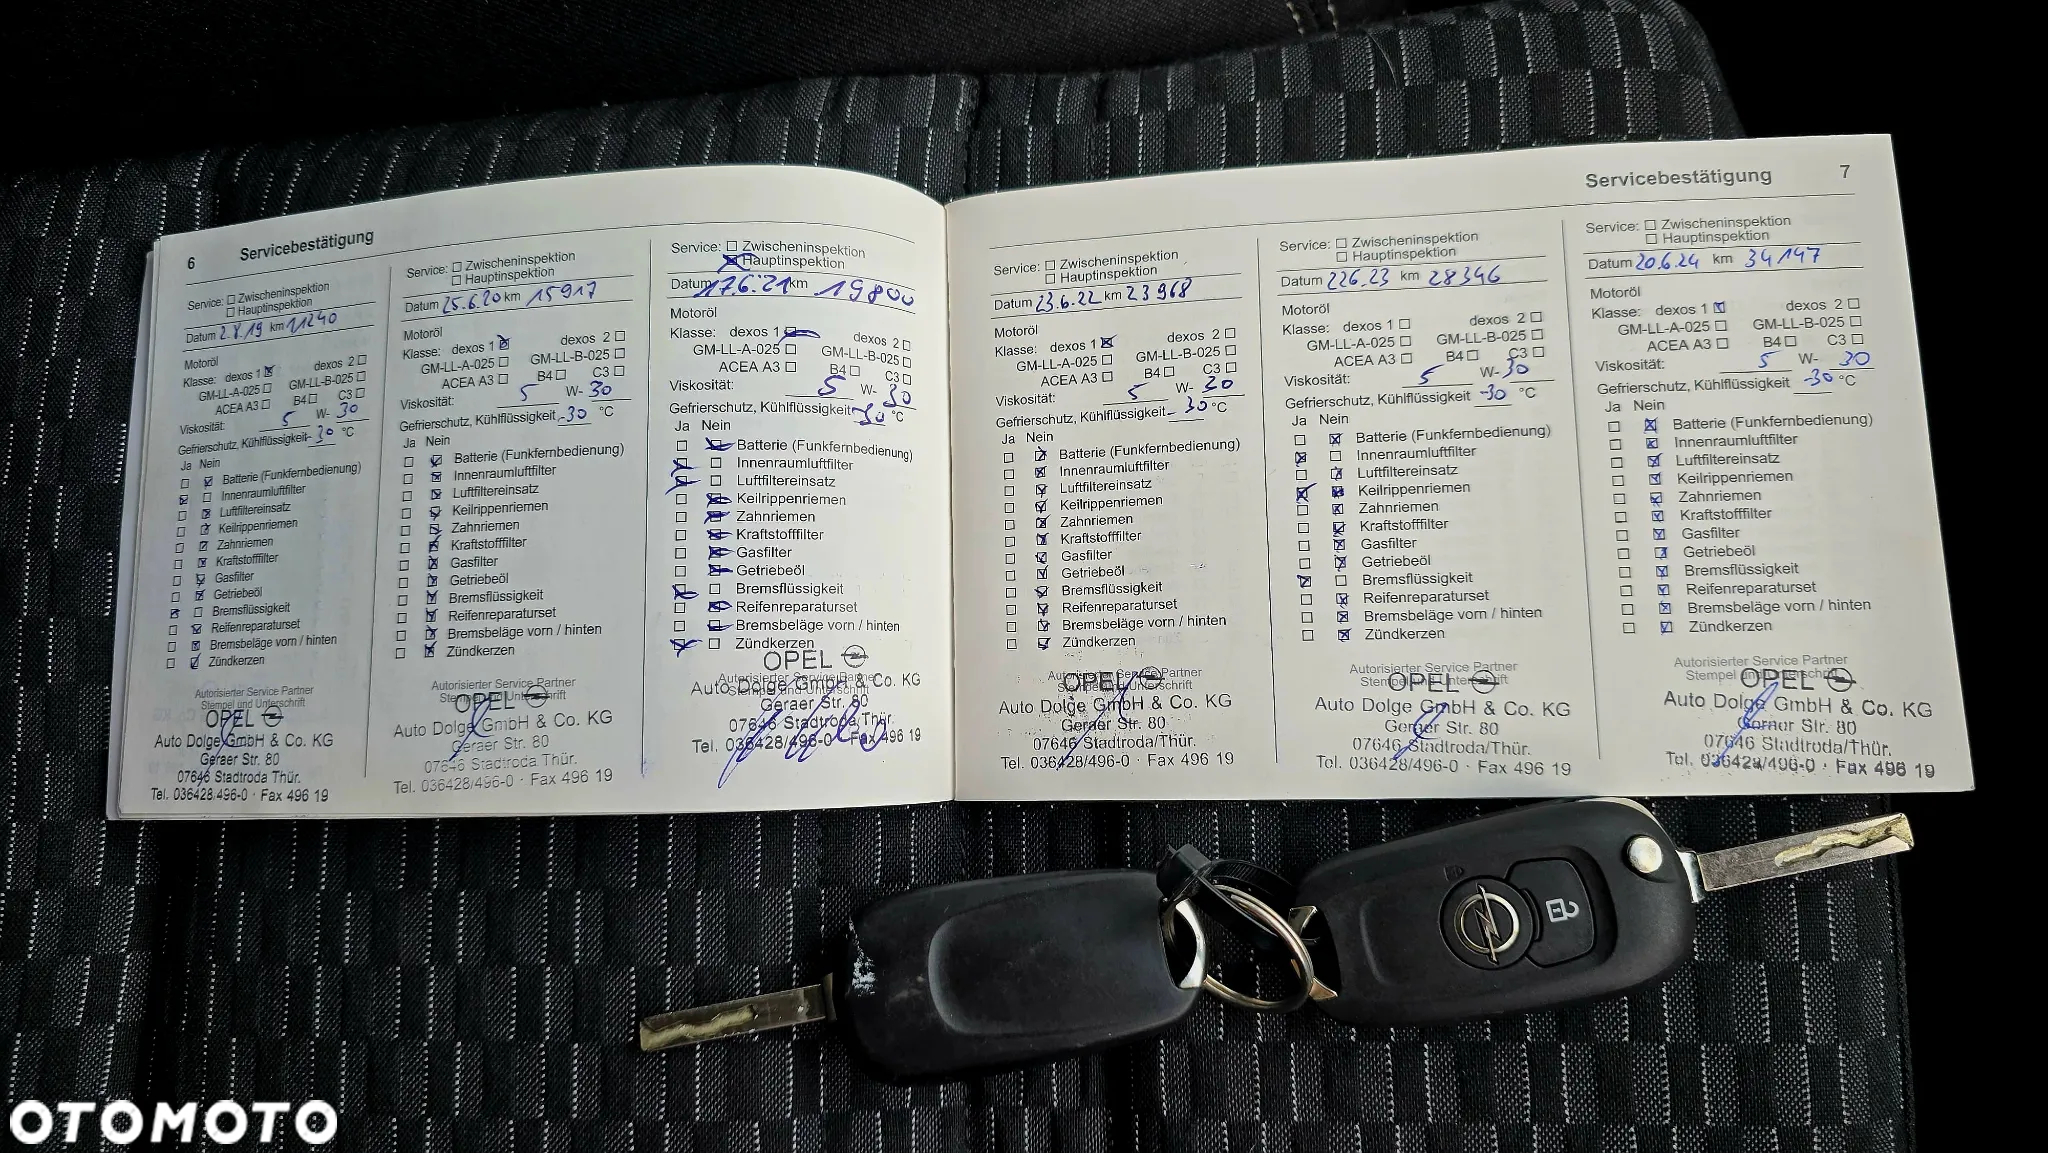 6 Servicebestätigung
Service: ☐ Zwischeninspektion
☐ Hauptinspektion
Datum 2.8.19 km 11240
Motoröl
Klasse: dexos 1 ☒ dexos 2 ☐
GM-LL-A-025 ☐ GM-LL-B-025 ☐
ACEA A3 ☐ B4 ☐ C3 ☐
Viskosität: 5 W- 30
Gefrierschutz, Kühlflüssigkeit -30 °C
Ja Nein
☐ ☒ Batterie (Funkfernbedienung)
☒ ☐ Innenraumluftfilter
☐ ☒ Luftfiltereinsatz
☐ ☒ Keilrippenriemen
☐ ☒ Zahnriemen
☐ ☒ Kraftstofffilter
☐ ☒ Gasfilter
☐ ☒ Getriebeöl
☒ ☐ Bremsflüssigkeit
☐ ☒ Reifenreparaturset
☐ ☒ Bremsbeläge vorn / hinten
☐ ☒ Zündkerzen
Autorisierter Service Partner
Stempel und Unterschrift
OPEL
Auto Dolge GmbH & Co. KG
Geraer Str. 80
07646 Stadtroda Thür.
Tel. 036428/496-0 · Fax 496 19
Service: ☐ Zwischeninspektion
☐ Hauptinspektion
Datum 25.6.20 km 15917
Motoröl
Klasse: dexos 1 ☒ dexos 2 ☐
GM-LL-A-025 ☐ GM-LL-B-025 ☐
ACEA A3 ☐ B4 ☐ C3 ☐
Viskosität: 5 W- 30
Gefrierschutz, Kühlflüssigkeit -30 °C
Ja Nein
☐ ☒ Batterie (Funkfernbedienung)
☐ ☒ Innenraumluftfilter
☐ ☒ Luftfiltereinsatz
☐ ☒ Keilrippenriemen
☐ ☒ Zahnriemen
☐ ☒ Kraftstofffilter
☐ ☒ Gasfilter
☐ ☒ Getriebeöl
☐ ☒ Bremsflüssigkeit
☐ ☒ Reifenreparaturset
☐ ☒ Bremsbeläge vorn / hinten
☐ ☒ Zündkerzen
Autorisierter Service Partner
Stempel und Unterschrift
OPEL
Auto Dolge GmbH & Co. KG
Geraer Str. 80
07646 Stadtroda Thür.
Tel. 036428/496-0 · Fax 496 19
Service: ☐ Zwischeninspektion
☒ Hauptinspektion
Datum 17.6.21 km 19800
Motoröl
Klasse: dexos 1 ☒ dexos 2 ☐
GM-LL-A-025 ☐ GM-LL-B-025 ☐
ACEA A3 ☐ B4 ☐ C3 ☐
Viskosität: 5 W- 30
Gefrierschutz, Kühlflüssigkeit -30 °C
Ja Nein
☐ ☒ Batterie (Funkfernbedienung)
☒ ☐ Innenraumluftfilter
☒ ☐ Luftfiltereinsatz
☐ ☒ Keilrippenriemen
☐ ☒ Zahnriemen
☐ ☒ Kraftstofffilter
☐ ☒ Gasfilter
☐ ☒ Getriebeöl
☒ ☐ Bremsflüssigkeit
☐ ☒ Reifenreparaturset
☐ ☒ Bremsbeläge vorn / hinten
☒ ☐ Zündkerzen
Autorisierter Service Partner
Stempel und Unterschrift
OPEL
Auto Dolge GmbH & Co. KG
Geraer Str. 80
07646 Stadtroda/Thür.
Tel. 036428/496-0 · Fax 496 19
Servicebestätigung 7
Service: ☐ Zwischeninspektion
☐ Hauptinspektion
Datum 23.6.22 km 23968
Motoröl
Klasse: dexos 1 ☒ dexos 2 ☐
GM-LL-A-025 ☐ GM-LL-B-025 ☐
ACEA A3 ☐ B4 ☐ C3 ☐
Viskosität: 5 W- 30
Gefrierschutz, Kühlflüssigkeit -30 °C
Ja Nein
☐ ☒ Batterie (Funkfernbedienung)
☐ ☒ Innenraumluftfilter
☐ ☒ Luftfiltereinsatz
☐ ☒ Keilrippenriemen
☐ ☒ Zahnriemen
☐ ☒ Kraftstofffilter
☐ ☒ Gasfilter
☐ ☒ Getriebeöl
☐ ☒ Bremsflüssigkeit
☐ ☒ Reifenreparaturset
☐ ☒ Bremsbeläge vorn / hinten
☐ ☒ Zündkerzen
Autorisierter Service Partner
Stempel und Unterschrift
OPEL
Auto Dolge GmbH & Co. KG
Geraer Str. 80
07646 Stadtroda/Thür.
Tel. 036428/496-0 · Fax 496 19
Service: ☐ Zwischeninspektion
☐ Hauptinspektion
Datum 226.23 km 28346
Motoröl
Klasse: dexos 1 ☐ dexos 2 ☐
GM-LL-A-025 ☐ GM-LL-B-025 ☐
ACEA A3 ☐ B4 ☐ C3 ☐
Viskosität: 5 W- 30
Gefrierschutz, Kühlflüssigkeit -30 °C
Ja Nein
☐ ☒ Batterie (Funkfernbedienung)
☒ ☐ Innenraumluftfilter
☐ ☒ Luftfiltereinsatz
☒ ☒ Keilrippenriemen
☐ ☒ Zahnriemen
☐ ☒ Kraftstofffilter
☐ ☒ Gasfilter
☐ ☒ Getriebeöl
☒ ☐ Bremsflüssigkeit
☐ ☒ Reifenreparaturset
☐ ☒ Bremsbeläge vorn / hinten
☐ ☒ Zündkerzen
Autorisierter Service Partner
Stempel und Unterschrift
OPEL
Auto Dolge GmbH & Co. KG
Geraer Str. 80
07646 Stadtroda/Thür.
Tel. 036428/496-0 · Fax 496 19
Service: ☐ Zwischeninspektion
☐ Hauptinspektion
Datum 20.6.24 km 34147
Motoröl
Klasse: dexos 1 ☒ dexos 2 ☐
GM-LL-A-025 ☐ GM-LL-B-025 ☐
ACEA A3 ☐ B4 ☐ C3 ☐
Viskosität: 5 W- 30
Gefrierschutz, Kühlflüssigkeit -30 °C
Ja Nein
☐ ☒ Batterie (Funkfernbedienung)
☐ ☒ Innenraumluftfilter
☐ ☒ Luftfiltereinsatz
☐ ☒ Keilrippenriemen
☐ ☒ Zahnriemen
☐ ☒ Kraftstofffilter
☐ ☒ Gasfilter
☐ ☒ Getriebeöl
☐ ☒ Bremsflüssigkeit
☐ ☒ Reifenreparaturset
☐ ☒ Bremsbeläge vorn / hinten
☐ ☒ Zündkerzen
Autorisierter Service Partner
Stempel und Unterschrift
OPEL
Auto Dolge GmbH & Co. KG
Geraer Str. 80
07646 Stadtroda/Thür.
Tel. 036428/496-0 · Fax 496 19
OTOMOTO